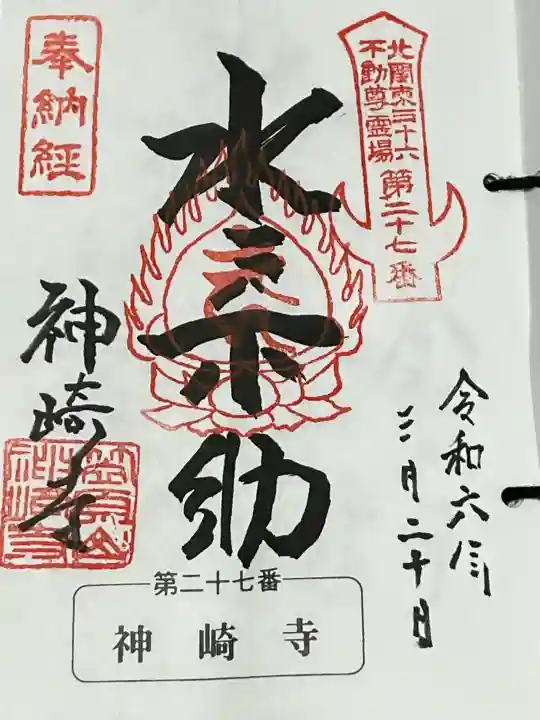 奉納経
北関東三十六
不動尊霊場
第二十七番
水戸不動
令和六年
三月二十日
神崎寺
笠原山
神崎寺
第二十七番
神崎寺